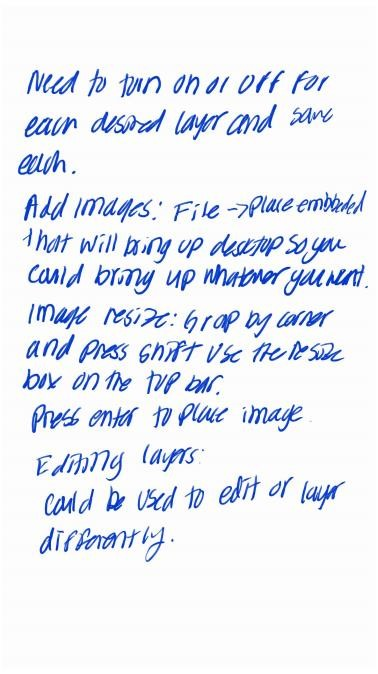 Need to turn on or off for
each desired layer and save
each.
Add Images: File -> Place embedded
that will bring up desktop so you
could bring up whatever you want.
Image resize: Grap by corner
and press shift use the resize
box on the top bar.
Press enter to place image
Editing layers:
could be used to edit or layer
differently.